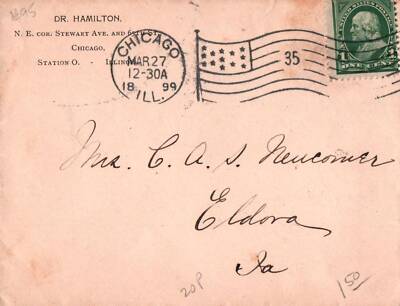 DR. HAMILTON,
N. E. COR. STEWART AVE. AND
CHICAGO,
STATION O. - ILLINOIS
CHICAGO
MAR 27
12-30A
18 99
ILL.
35
1
ONE CENT
Mrs. C. A. S. Newcomer
Eldora
Ia
20P
1 50